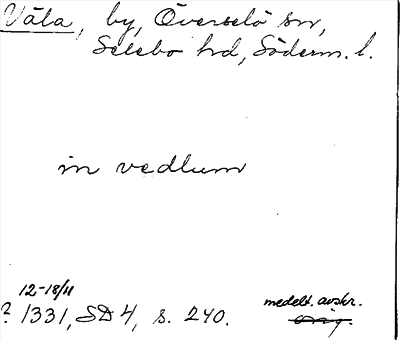 Väla, by, Överselö sn,
Selebo hd, Söderm. l.
in vedlum
12-18/11
? 1331, SD 4, s. 240.
medelt. avskr.
orig.